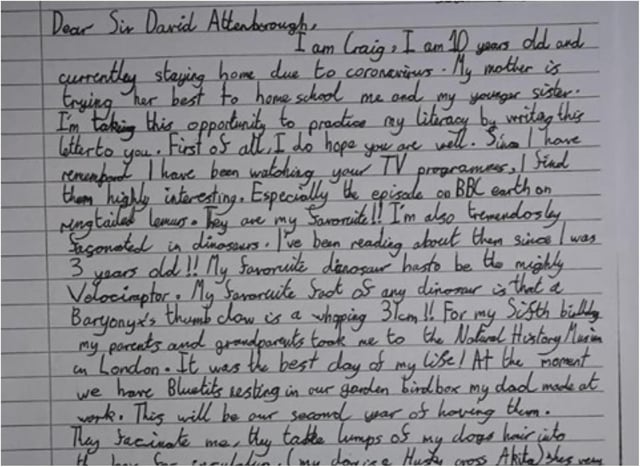 Dear Sir David Attenborough,
I am Craig, I am 10 years old and
currently staying home due to coronavirus. My mother is
trying her best to home school me and my younger sister.
I'm taking this opportunity to practice my literacy by writing this
letter to you. First of all, I do hope you are well. Since I have
I have been watching your TV programmes, I find
them highly interesting. Especially the episode on BBC earth on
ringtailed lemurs. They are my favoruite!! I'm also tremendosley
in dinosaurs. I've been reading about them since I was
3 years old!! My favoruite dinosaur hasto be the mighty
Velociraptor. My favoruite fact of any dinosaur is that a
Baryonyx's thumb claw is a whoping 31cm!! For my fifth
my parents and grandparents took me to the Natural History
in London. It was the best day of my life! At the moment
we have Bluetits nesting in our garden birdbox my dad made at
work. This will be our second year of having them.
They facinate me, they take lumps of my dogs hair into
(my dog is a Husky cross Akita) shes very